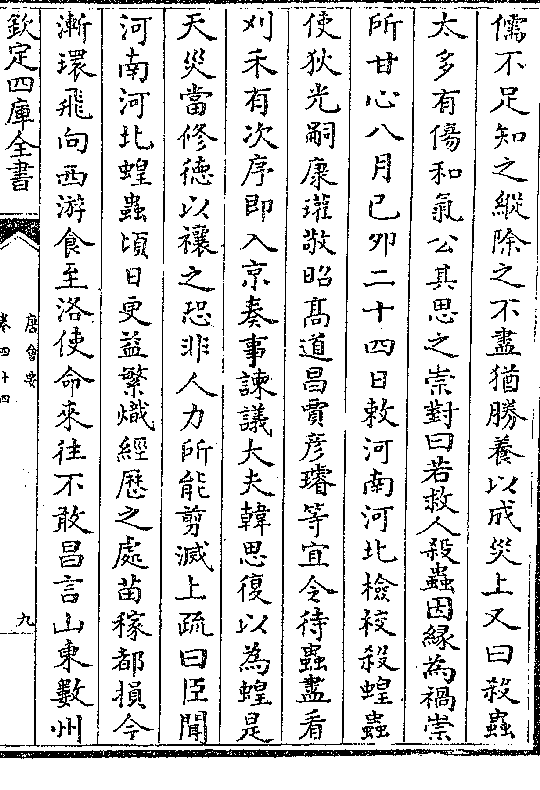 儒不足知之縱除之不盡猶勝養以成災上又曰殺蟲
太多有傷和氣公其思之崇對曰若救人殺蟲因緣為禍崇
所甘心八月已夘二十四日敕河南河北檢校殺蝗蟲
使狄光嗣康瓘敬昭髙道昌賈彦璿等宜令待蟲盡看
刈禾有次序即入京奏事諫議大夫韓思復以為蝗是
天災當修德以禳之恐非人力所能剪滅上疏曰臣聞
河南河北蝗蟲頃日更益繁熾經歴之處苗稼都損今
漸環飛向西游食至洛使命來往不敢昌言山東數州
欽定四庫全書
唐會要
卷四十四
九